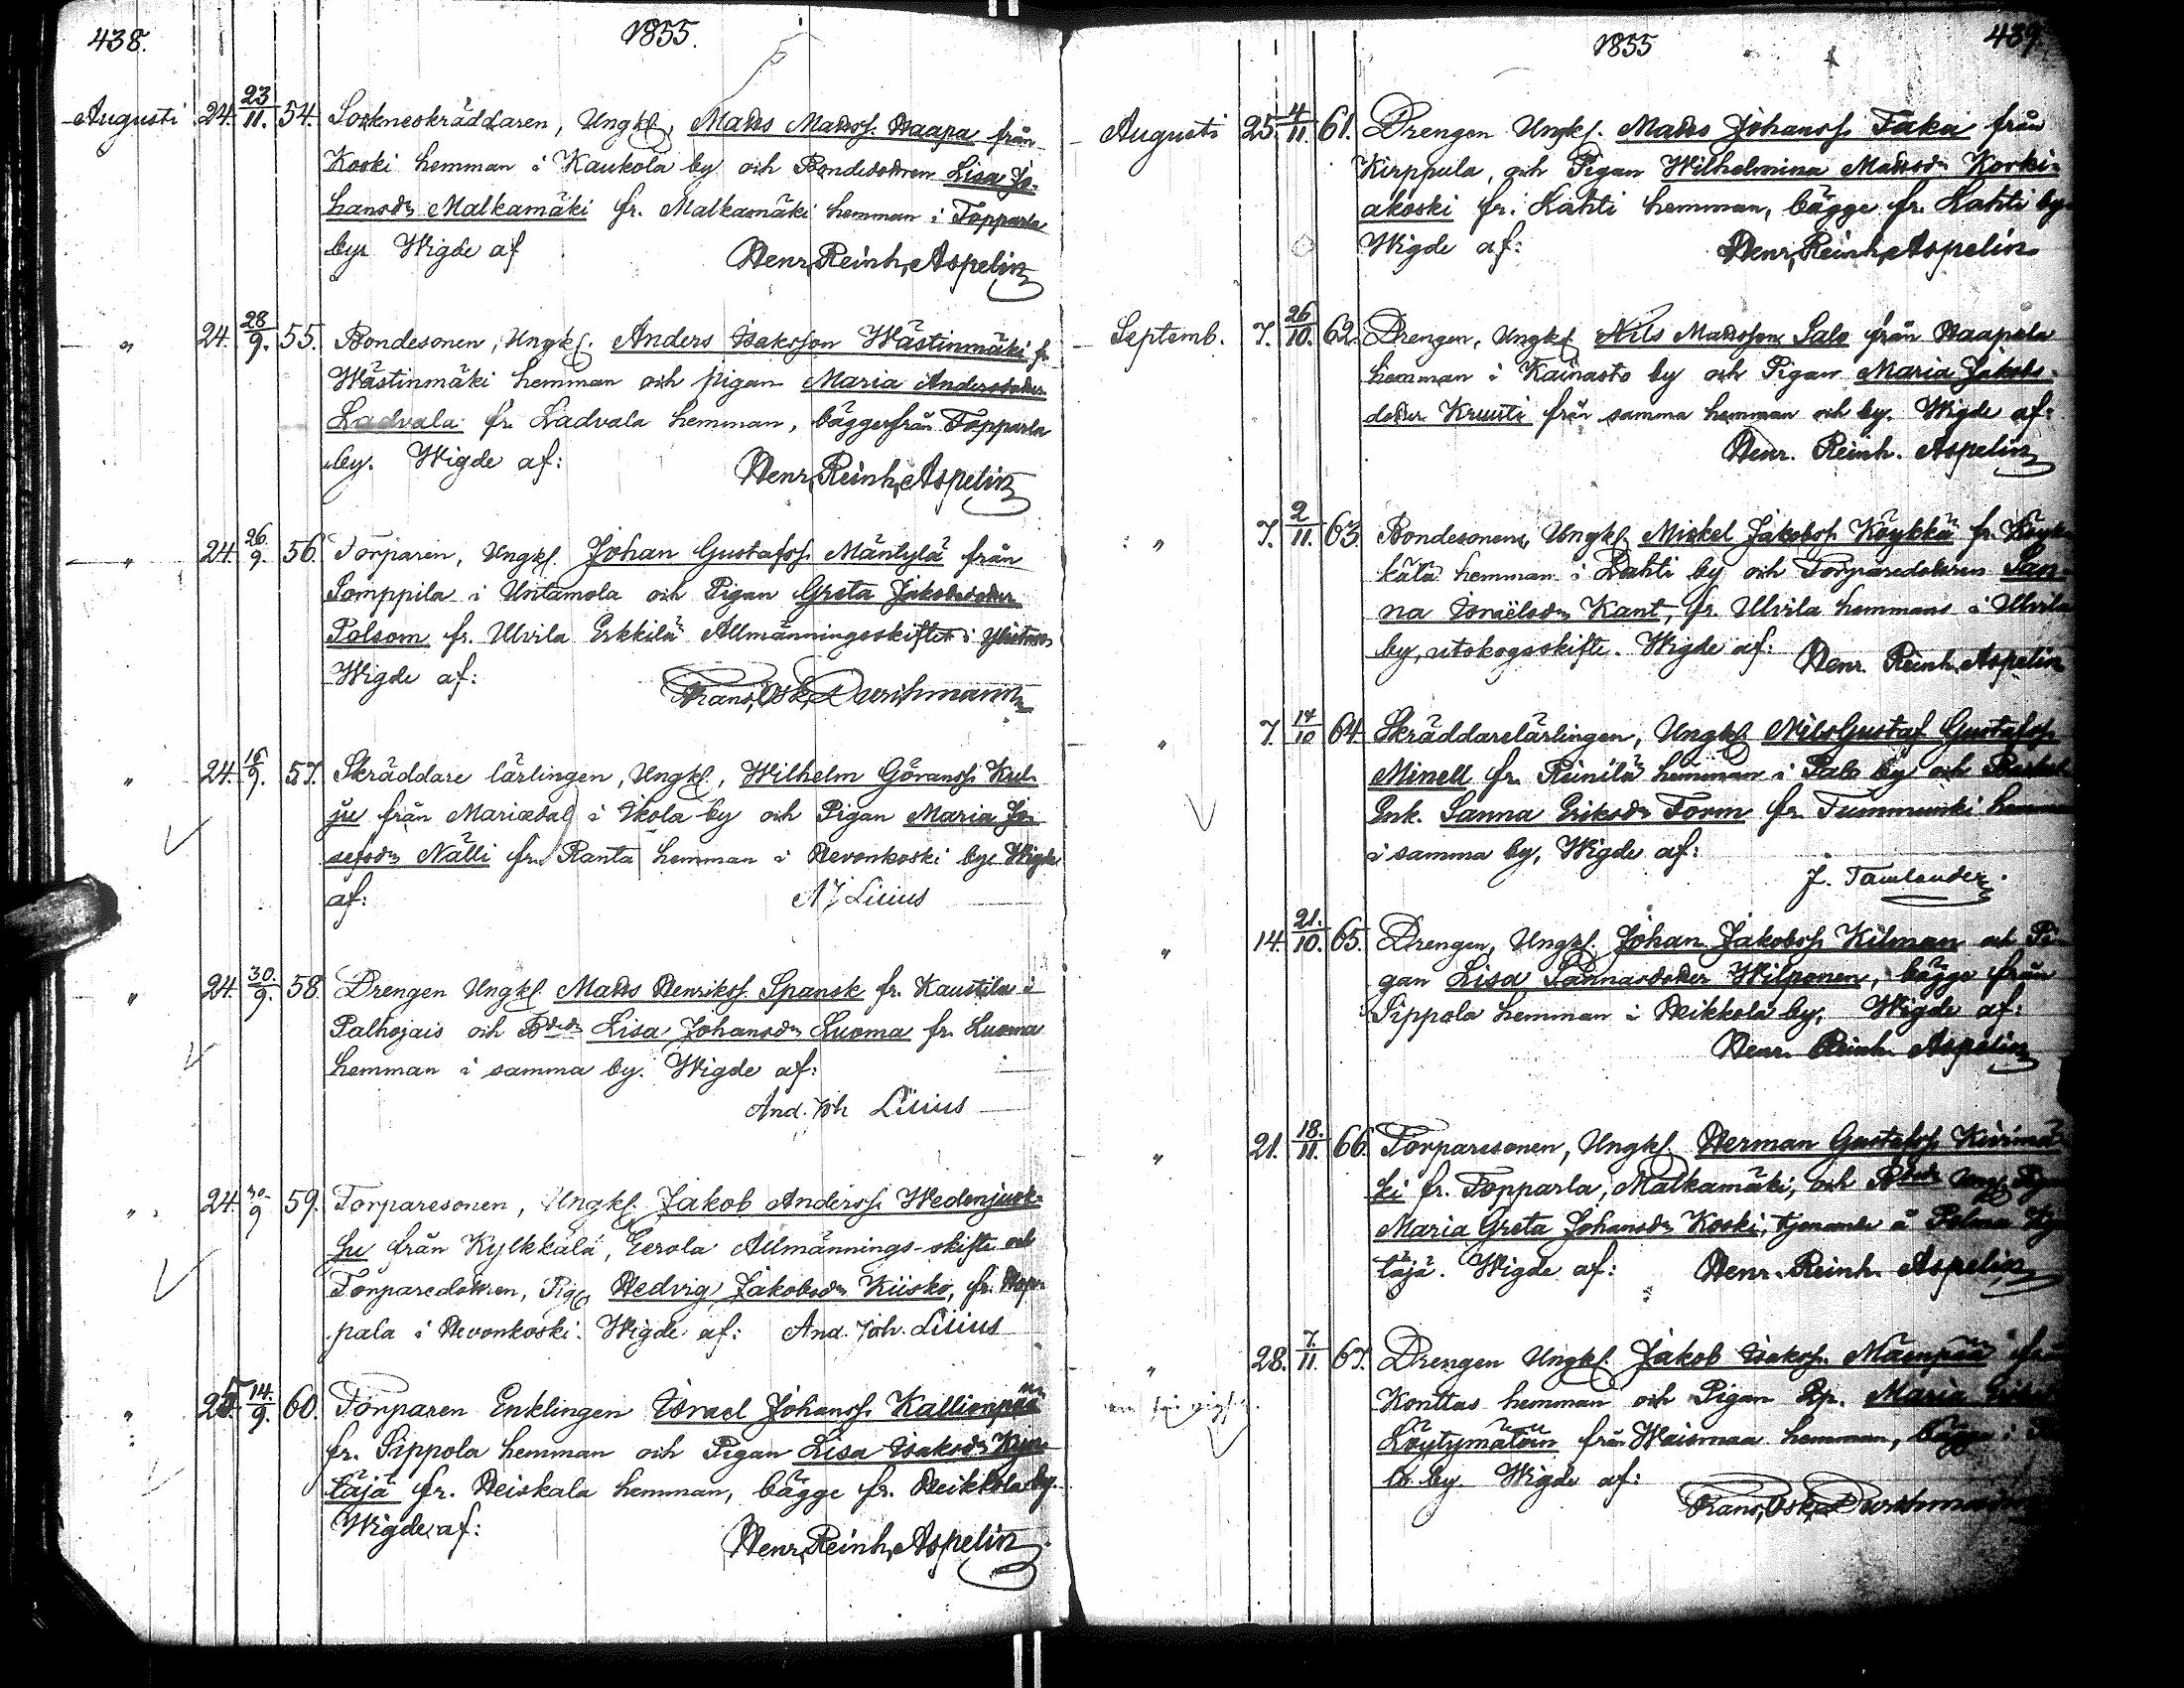 438.
1855.
Augusti 24. 23/11. 54. Sockneskräddaren, Ungk., Matts Mattss. Haapa från
Koski hemman i Kaukola by och Bondedottren Lisa Jo-
hansdr Malkamäki fr. Malkamäki hemman i Topparla
by. Wigde af
Henr. Reinh. Aspelin
" 24. 28/9. 55. Bondesonen, Ungk. Anders Isaksson Wästinmäki fr.
Wästinmäki hemman och pigan Maria Andersdotter
Ladvala fr. Ladvala hemman, bägge från Topparla
by. Wigde af:
Henr. Reinh. Aspelin
" 24. 26/9. 56. Torparen, Ungk. Johan Gustafss. Mäntylä från
Somppila i Untamola och Pigan Greta Jakobsdotter
Palsom fr. Ulvila Erkkilä Allmänningsskiftet i
Wigde af:
Frans. Osk. Durchman
" 24. 16/9. 57. Skräddare lärlingen, Ungk., Wilhelm Göranss. Kul-
ju från Mariedal i Ikola by och Pigan Maria Jo-
sefsdr Nälli fr. Ranta hemman i Hevonkoski by. Wigde
af:
A J Lilius
" 24. 30./9. 58. Drengen Ungk. Matts Henrikss. Spansk fr. Kaustila i
Palhojais och Bdedr Lisa Johansdr Luoma fr. Luoma
hemman i samma by. Wigde af:
And. Joh Lilius
" 24. 30/9 59. Torparesonen, Ungk. Jakob Anderss. Wedenjuok-
su från Kylkkälä, Eerola Allmännings-skifte och
Torparedottren, Pig. Hedvig Jakobsdr Kiisko, fr. Hop-
pala i Hevonkoski. Wigde af: And. Joh. Lilius
" 25. 14./9. 60. Torparen Enklingen Israel Johanss. Kallionpää
fr. Sippola hemman och Pigan Lisa Isaksdr Kyn-
täjä fr. Heiskala hemman, bägge fr. Heikkola by.
Wigde af:
Henr. Reinh. Aspelin
1855
439.
Augusti 25. 4/11. 61. Drengen Ungk. Matts Johanss. Taka från
Kirppula, och Pigan Wilhelmina Mattsdr Korki-
akoski fr. Lahti hemman, bägge fr. Lahti by
Wigde af:
Henr. Reinh. Aspelin
Septemb. 7. 26/10. 62. Drengen, Ungk. Nils Mattsson Salo från Haapala
hemman i Kainasto by och Pigan Maria Jakobs-
dotter Kruuti från samma hemman och by. Wigde af:
Henr. Reinh. Aspelin
" 7. 2/11. 63. Bondesonen, Ungk. Mickel Jakobss. Köykkä fr. Köyk-
kälä hemman i Lahti by och Torparedottren San-
na Israëlsdr Kant, fr. Ulvila hemmans i Ulvila
by, utskogsskifte. Wigde af:
Henr. Reinh. Aspelin
" 7. 14/10 64. Skräddarelärlingen, Ungk. Nils Gustaf Gustafss.
Minell fr. Reinilä hemman i Palo by och
Enk. Sanna Eriksdr Form fr. hemman
i samma by, Wigde af:
J. Tamlander.
" 14. 21./10. 65. Drengen, Ungk. Johan Jakobss. Kilman och Pi-
gan Lisa Sannasdotter Wilponen, bägge från
Sippola hemman i Heikkola by, Wigde af:
Henr. Reinh. Aspelin
" 21. 18./11. 66. Torparesonen, Ungk. Herman Gustafss. Kivimä-
ki fr. Topparla, Malkamäki, och
Maria Greta Johansdr Koski, tjenande å
täjä. Wigde af: Henr. Reinh. Aspelin
" 28. 7./11. 67. Drengen Ungk. Jakob Isakss. Mäenpää från
Konttas hemman och Pigan Maria
Löytymätöin från Waismaa hemman, bägge i
by. Wigde af:
Frans. Osk. Durchman